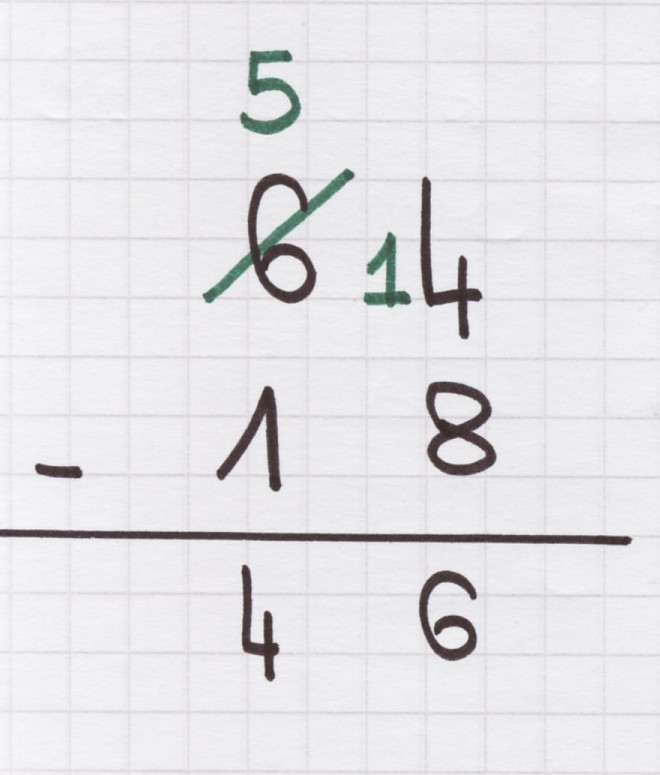 5
6 14
- 1 8
4 6